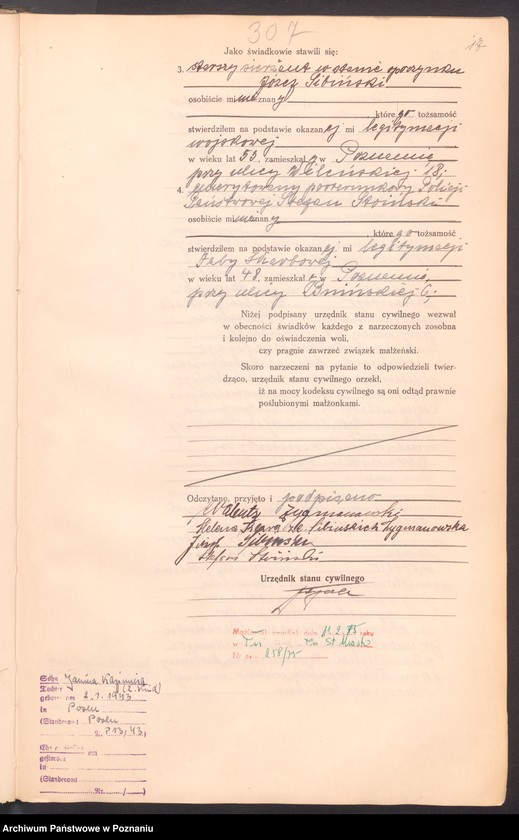 307
17
Jako świadkowie stawili się:
3. starszy sierżant w stanie spoczynku
Józef Sibiński
osobiście mi nieznany
, którego tożsamość
stwierdziłem na podstawie okazanej mi legitymacji
wojskowej
w wieku lat 53, zamieszkały w Poznaniu
przy ulicy Wilsińskiej 18;
4. emerytowany posterunkowy Policji
Państwowej Stefan Stoiński
osobiście mi nieznany
, którego tożsamość
stwierdziłem na podstawie okazanej mi legitymacji
Izby Skarbowej
w wieku lat 48, zamieszkały w Poznaniu,
przy ulicy Bnińskiej 6;
Niżej podpisany urzędnik stanu cywilnego wezwał
w obecności świadków każdego z narzeczonych zosobna
i kolejno do oświadczenia woli,
czy pragnie zawrzeć związek małżeński.
Skoro narzeczeni na pytanie to odpowiedzieli twier-
dząco, urzędnik stanu cywilnego orzekł,
iż na mocy kodeksu cywilnego są oni odtąd prawnie
poślubionymi małżonkami.
Odczytano, przyjęto i podpisano
Walenty Zygmanowski
Helena Zygmanowska
Józef Sibiński
Stefan Stoiński
Urzędnik stanu cywilnego
dnia 11.2.75 roku
w
Nr 258/75
Sohn Janina Kazimiera
Tochter (2. Kind)
geboren am 2.1.1943
in Posen
(Standesamt Posen
Nr. 213/43)
am
in
(Standesamt
Nr. /)
Archiwum Państwowe w Poznaniu